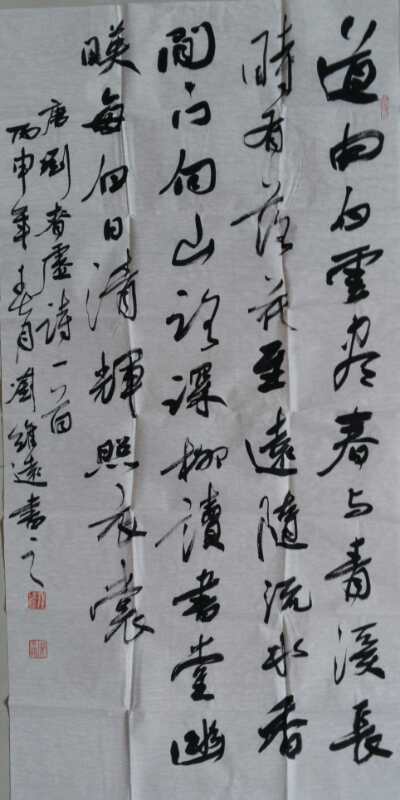 道由白雲尽春与青溪長
時有落花至遠隨流水香
閒門向山路深柳讀書堂幽
暎每白日清輝照衣裳
唐劉眘虛詩一首
丙申年春月維遠書之